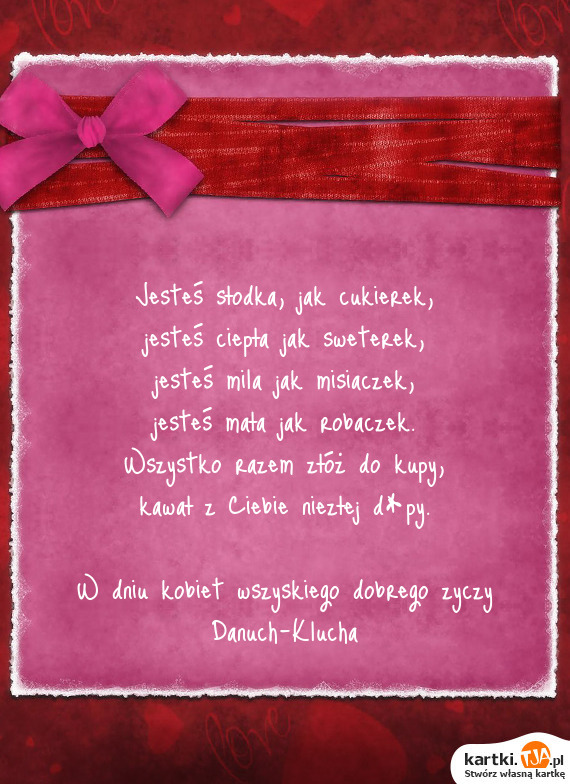 love
love
Jesteś słodka, jak cukierek,
jesteś ciepła jak sweterek,
jesteś mila jak misiaczek,
jesteś mała jak robaczek.
Wszystko razem złóż do kupy,
kawał z Ciebie niezłej d*py.
W dniu kobiet wszyskiego dobrego zyczy
Danuch-Klucha
love
kartki.TJA.pl
Stwórz własną kartkę